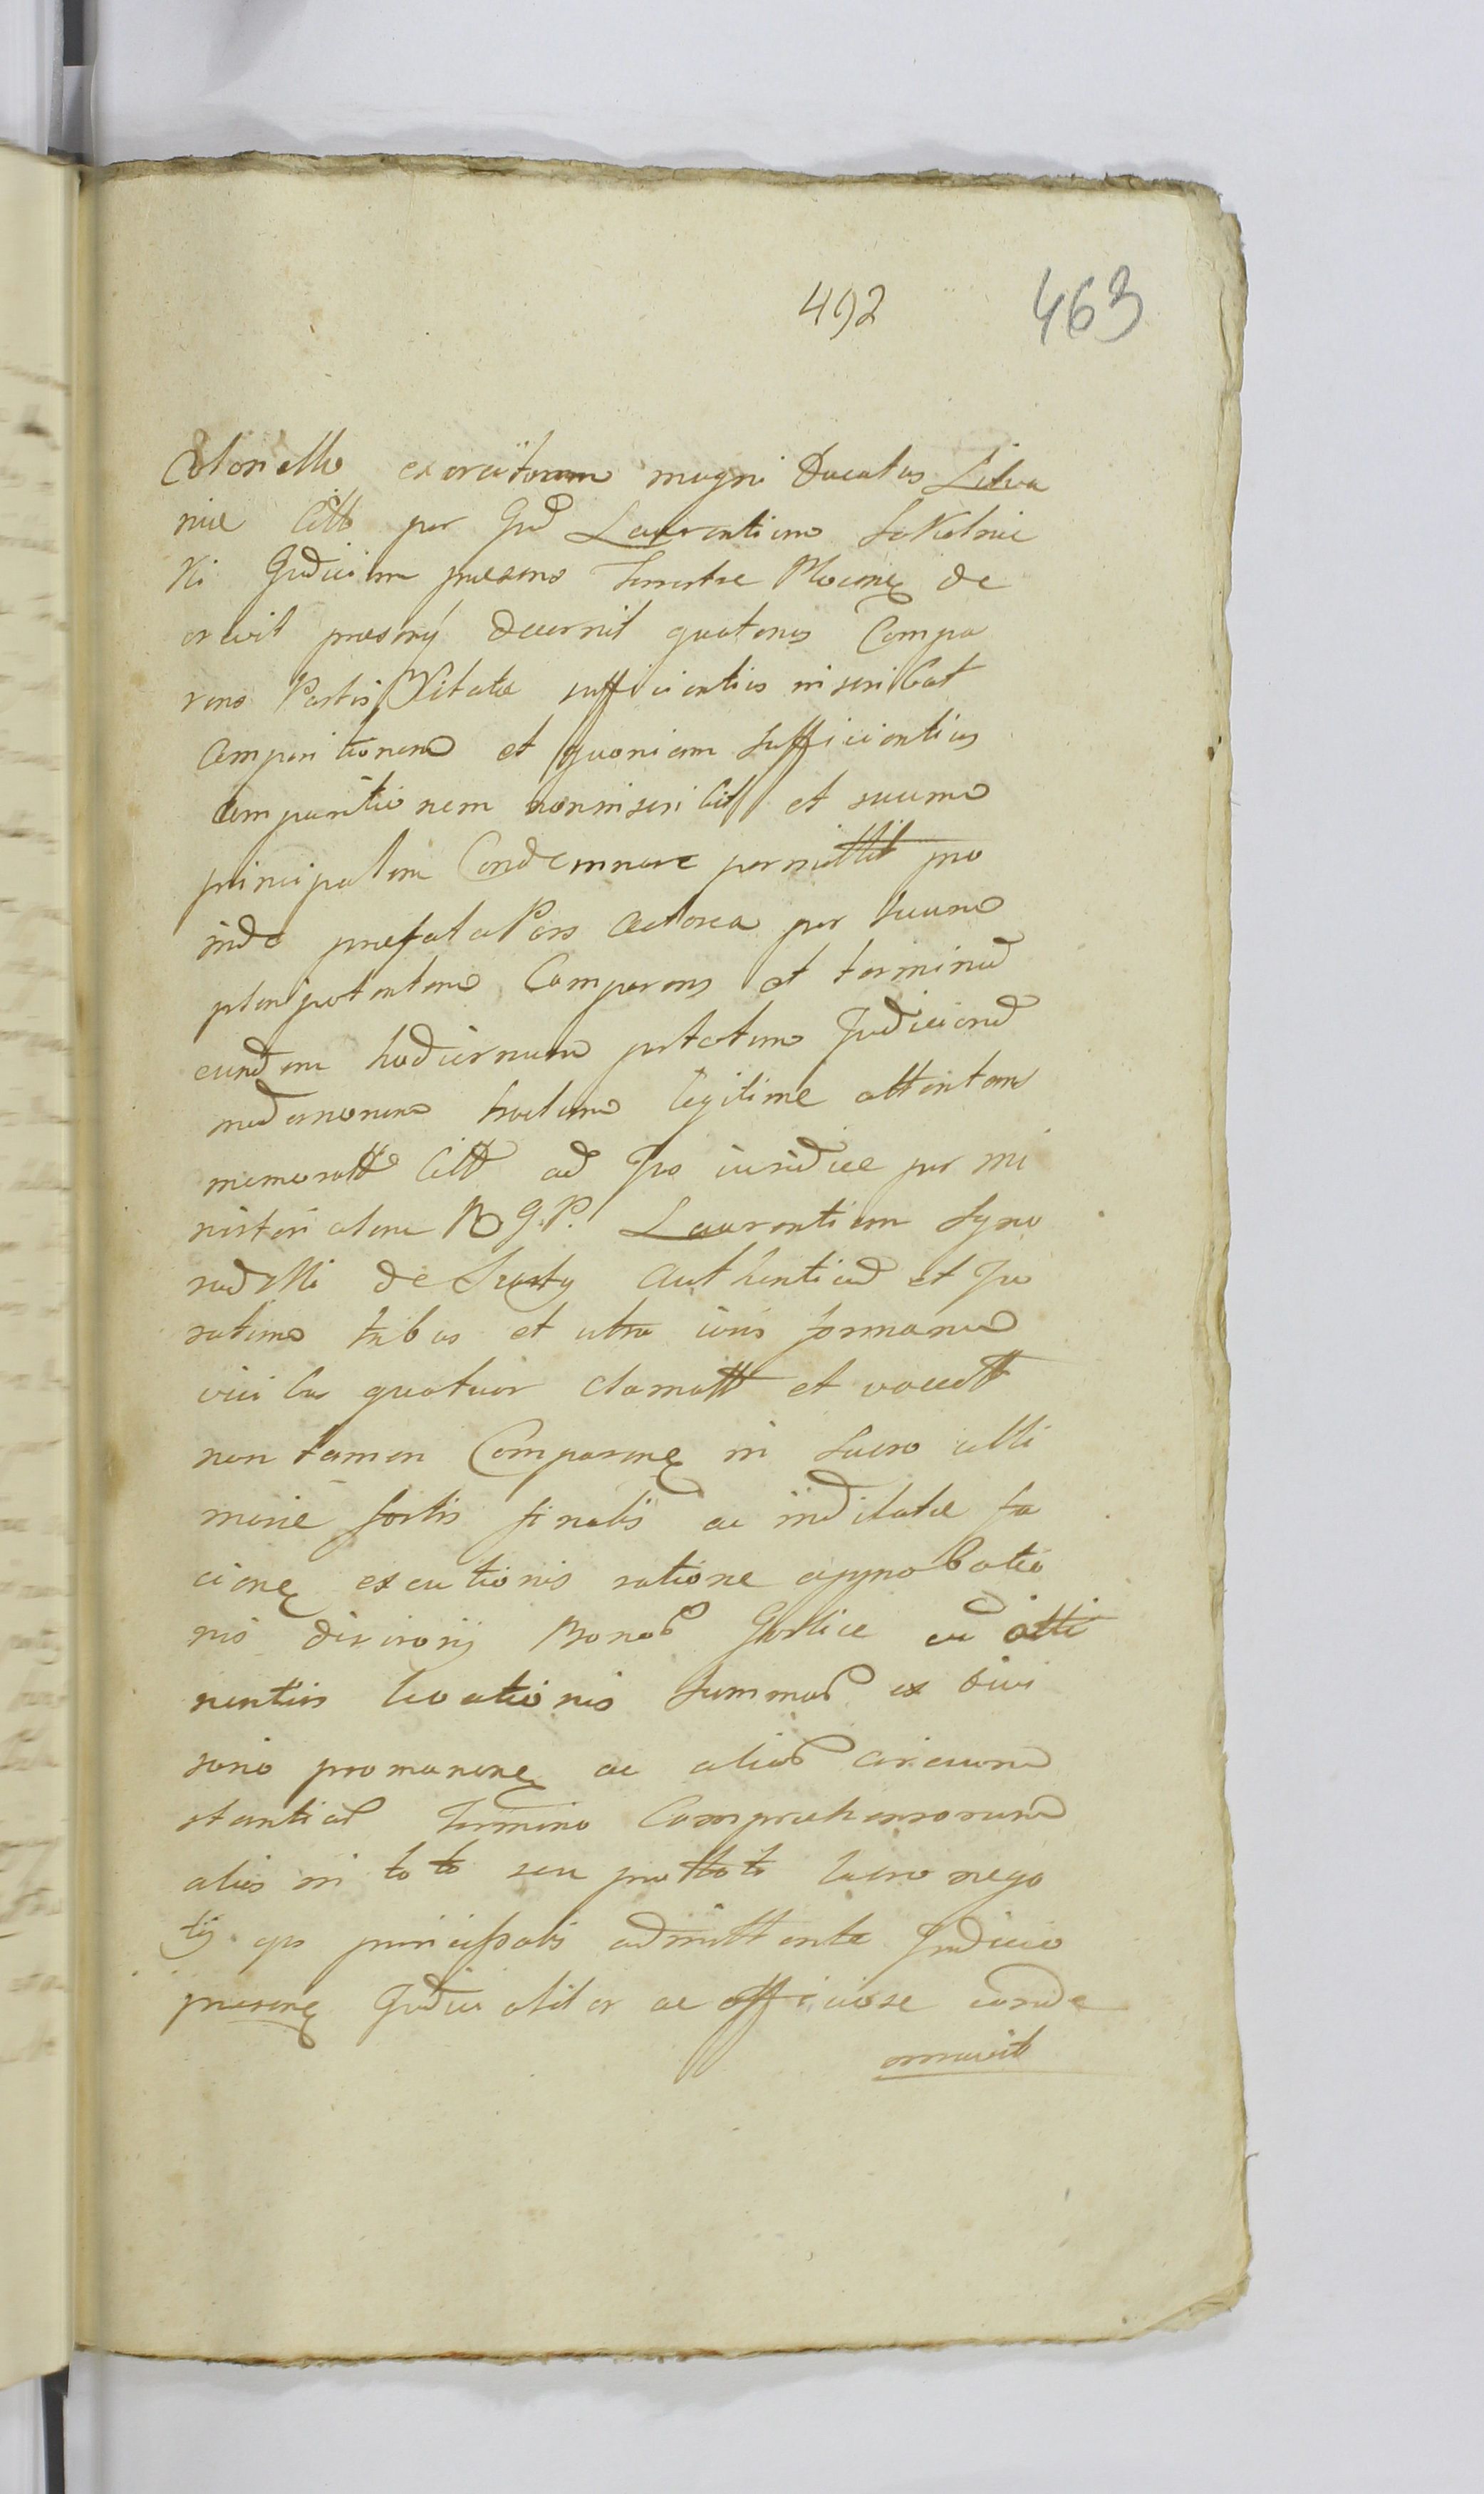 492 463
Colonello exercituum magni Ducatus Litva
niae Citt per Gnd Laurentium Sokolnic
ki Judicium praesens Terrestre Plocens de
crevit praesntq decernit quatenus Compa
rens Partis Citatae sufficientius inscribat
Comparitionem et quoniam sufficientius
Comparitionem non inscribit et suum
principalem Condemnare permittit pro
inde praefata Pars Actorea per suum
plenipotentem Comparens et terminu
eundem hodiernum peremtorium Judiciand
legitime attentans
memoratt Citt ad Jus iuridice per mi
nisterialem R G. P. Laurentium
de authenticu et Ju
ratum tribus et ultra iuris formam
vicibus quatuor clamatt et vocatt
non tamen Comparens in lucro ulti
mariae sortis finalis ac inditatae fa
ciens exeutionis ratione approbatio
nis divisorij Bonor Gostice cu atti
nentiis levationis summar ex divi
sorio promanens ac aliar circum
stantiar Termino Comprehensorum
alias in toto seu pro toto lucro nego
tij principalis admittente Judicio
praesens Judicialiter ac officiose conde
mnavit